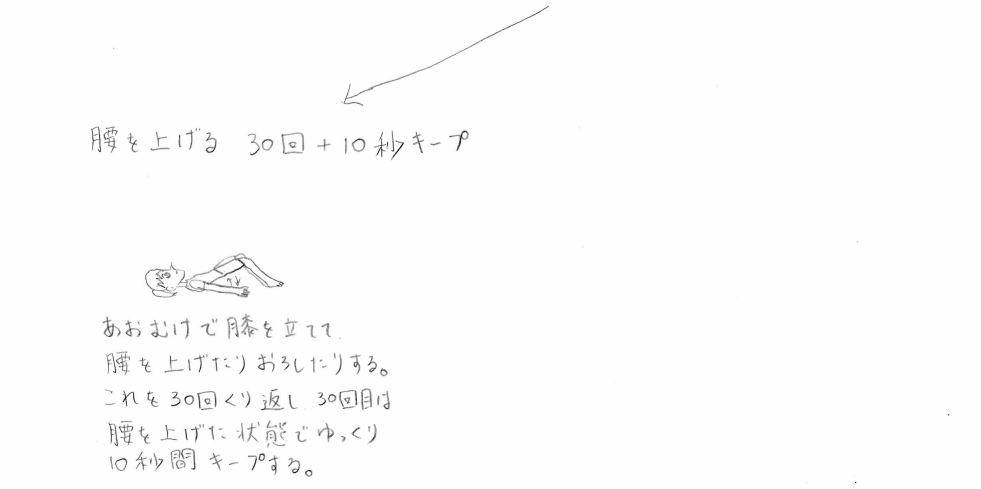 腰を上げる 30回+10秒キープ
あおむけで膝を立てて、
腰を上げたりおろしたりする。
これを30回くり返し、30回目は
腰を上げた状態でゆっくり
10秒間キープする。